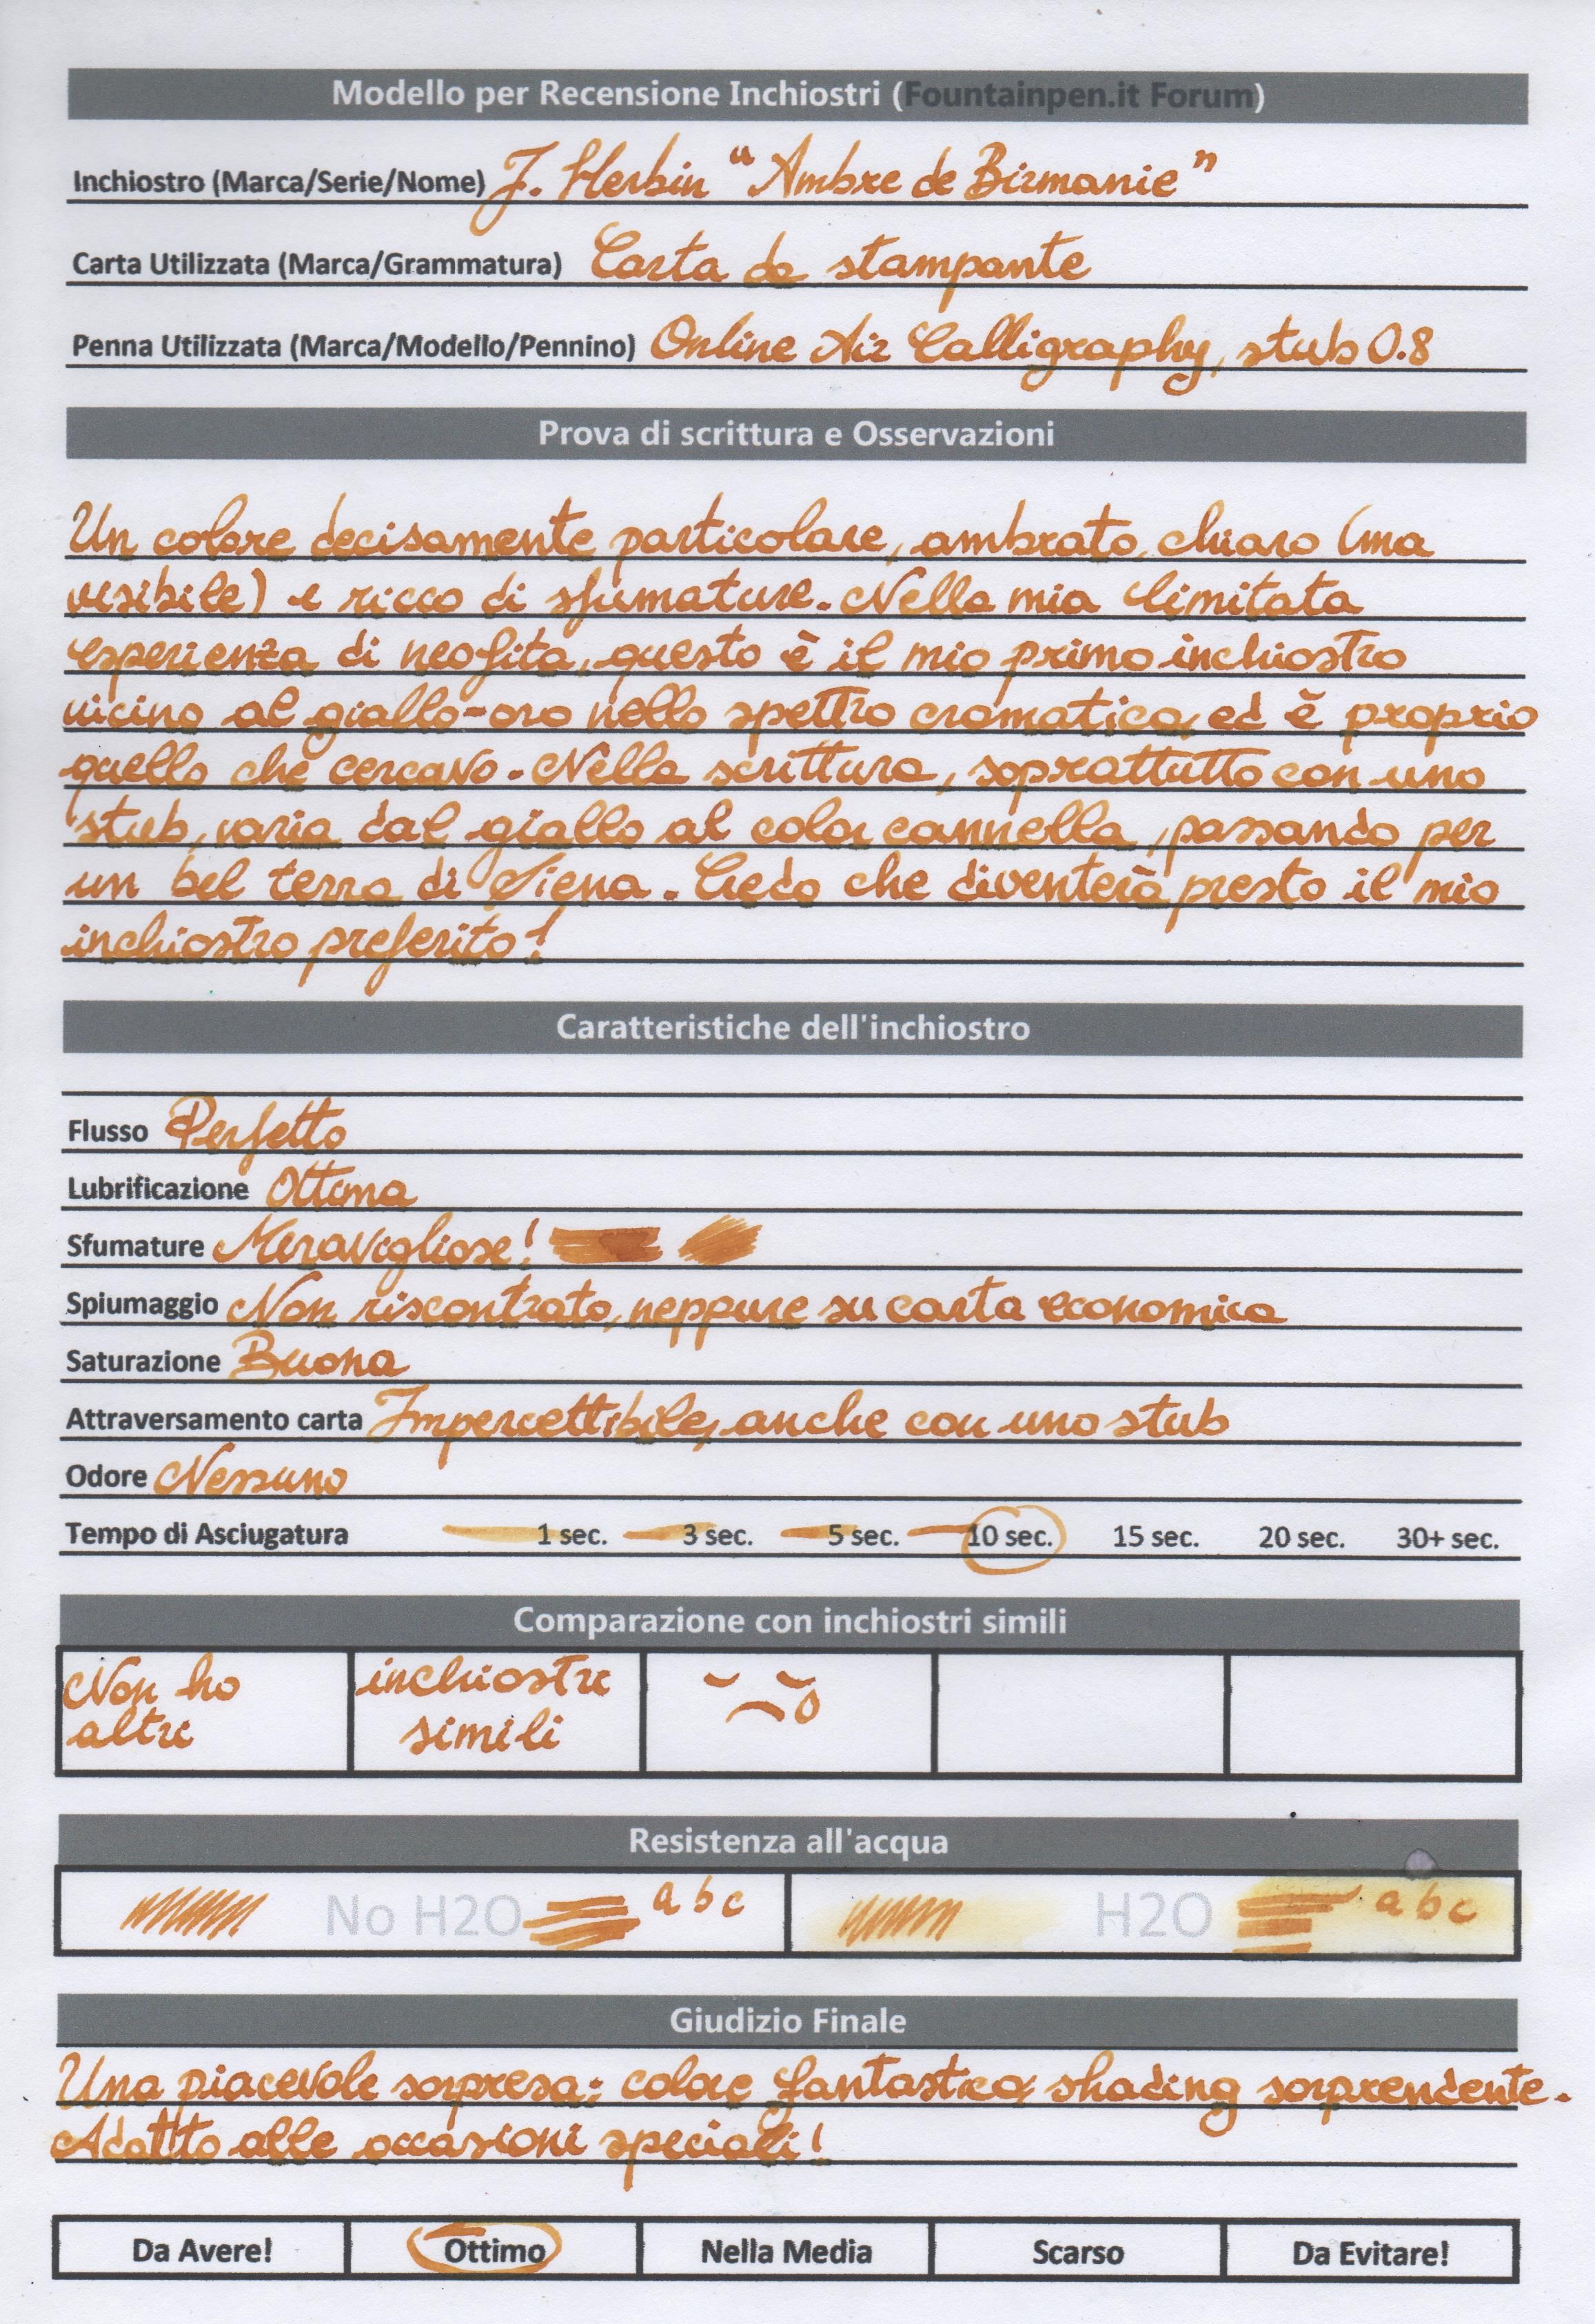 Modello per Recensione Inchiostri (Fountainpen.it Forum)
Inchiostro (Marca/Serie/Nome) J. Herbin "Ambre de Birmanie"
Carta Utilizzata (Marca/Grammatura) Carta da stampante
Penna Utilizzata (Marca/Modello/Pennino) Online Air Calligraphy, stub 0.8
Prova di scrittura e Osservazioni
Un colore decisamente particolare, ambrato, chiaro (ma
visibile) e ricco di sfumature. Nella mia limitata
esperienza di neofita, questo è il mio primo inchiostro
vicino al giallo-oro nello spettro cromatico, ed è proprio
quello che cercavo. Nella scrittura, soprattutto con uno
stub, varia dal giallo al color cannella, passando per
un bel terra di Siena. Credo che diventerà presto il mio
inchiostro preferito!
Caratteristiche dell'inchiostro
Flusso Perfetto
Lubrificazione Ottima
Sfumature Meravigliose!
Spiumaggio Non riscontrato, neppure su carta economica
Saturazione Buona
Attraversamento carta Impercettibile, anche con uno stub
Odore Nessuno
Tempo di Asciugatura 1 sec. 3 sec. 5 sec. 10 sec. 15 sec. 20 sec. 30+ sec.
Comparazione con inchiostri simili
Non ho inchiostri
altri simili
Resistenza all'acqua
No H2O a b c H2O a b c
Giudizio Finale
Una piacevole sorpresa: colore fantastico, shading sorprendente.
Adatto alle occasioni speciali!
Da Avere! Ottimo Nella Media Scarso Da Evitare!